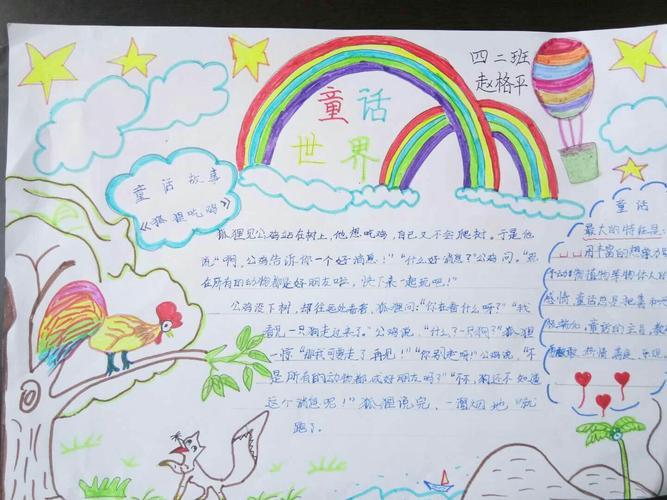 四二班
赵格平
童话
世界
童话故事
《狐狸吃鸡》
狐狸见公鸡站在树上，他想吃鸡，自己又不会爬树，于是他
说“啊，公鸡告诉你一个好消息！”“什么好消息？”公鸡问。“现
在所有的动物都是好朋友啦，快下来一起玩吧！”
公鸡没下树，却往远处看看，狐狸问：“你在看什么呀？”“我
看见一只狗走过来了。”公鸡说。“什么？一只狗？”狐狸
一惊“那我可要走了再见！”“你别走呀！”公鸡说，“不
是所有的动物都成好朋友吗？”“不，狗还不知道
这个消息呢！”狐狸说完，一溜烟地“就
跑了。
童话
最大的特征是：
用丰富的想象力
动植物等物体人的
感情，童话总是把真和
童话的主旨，教
热情 善良 乐观